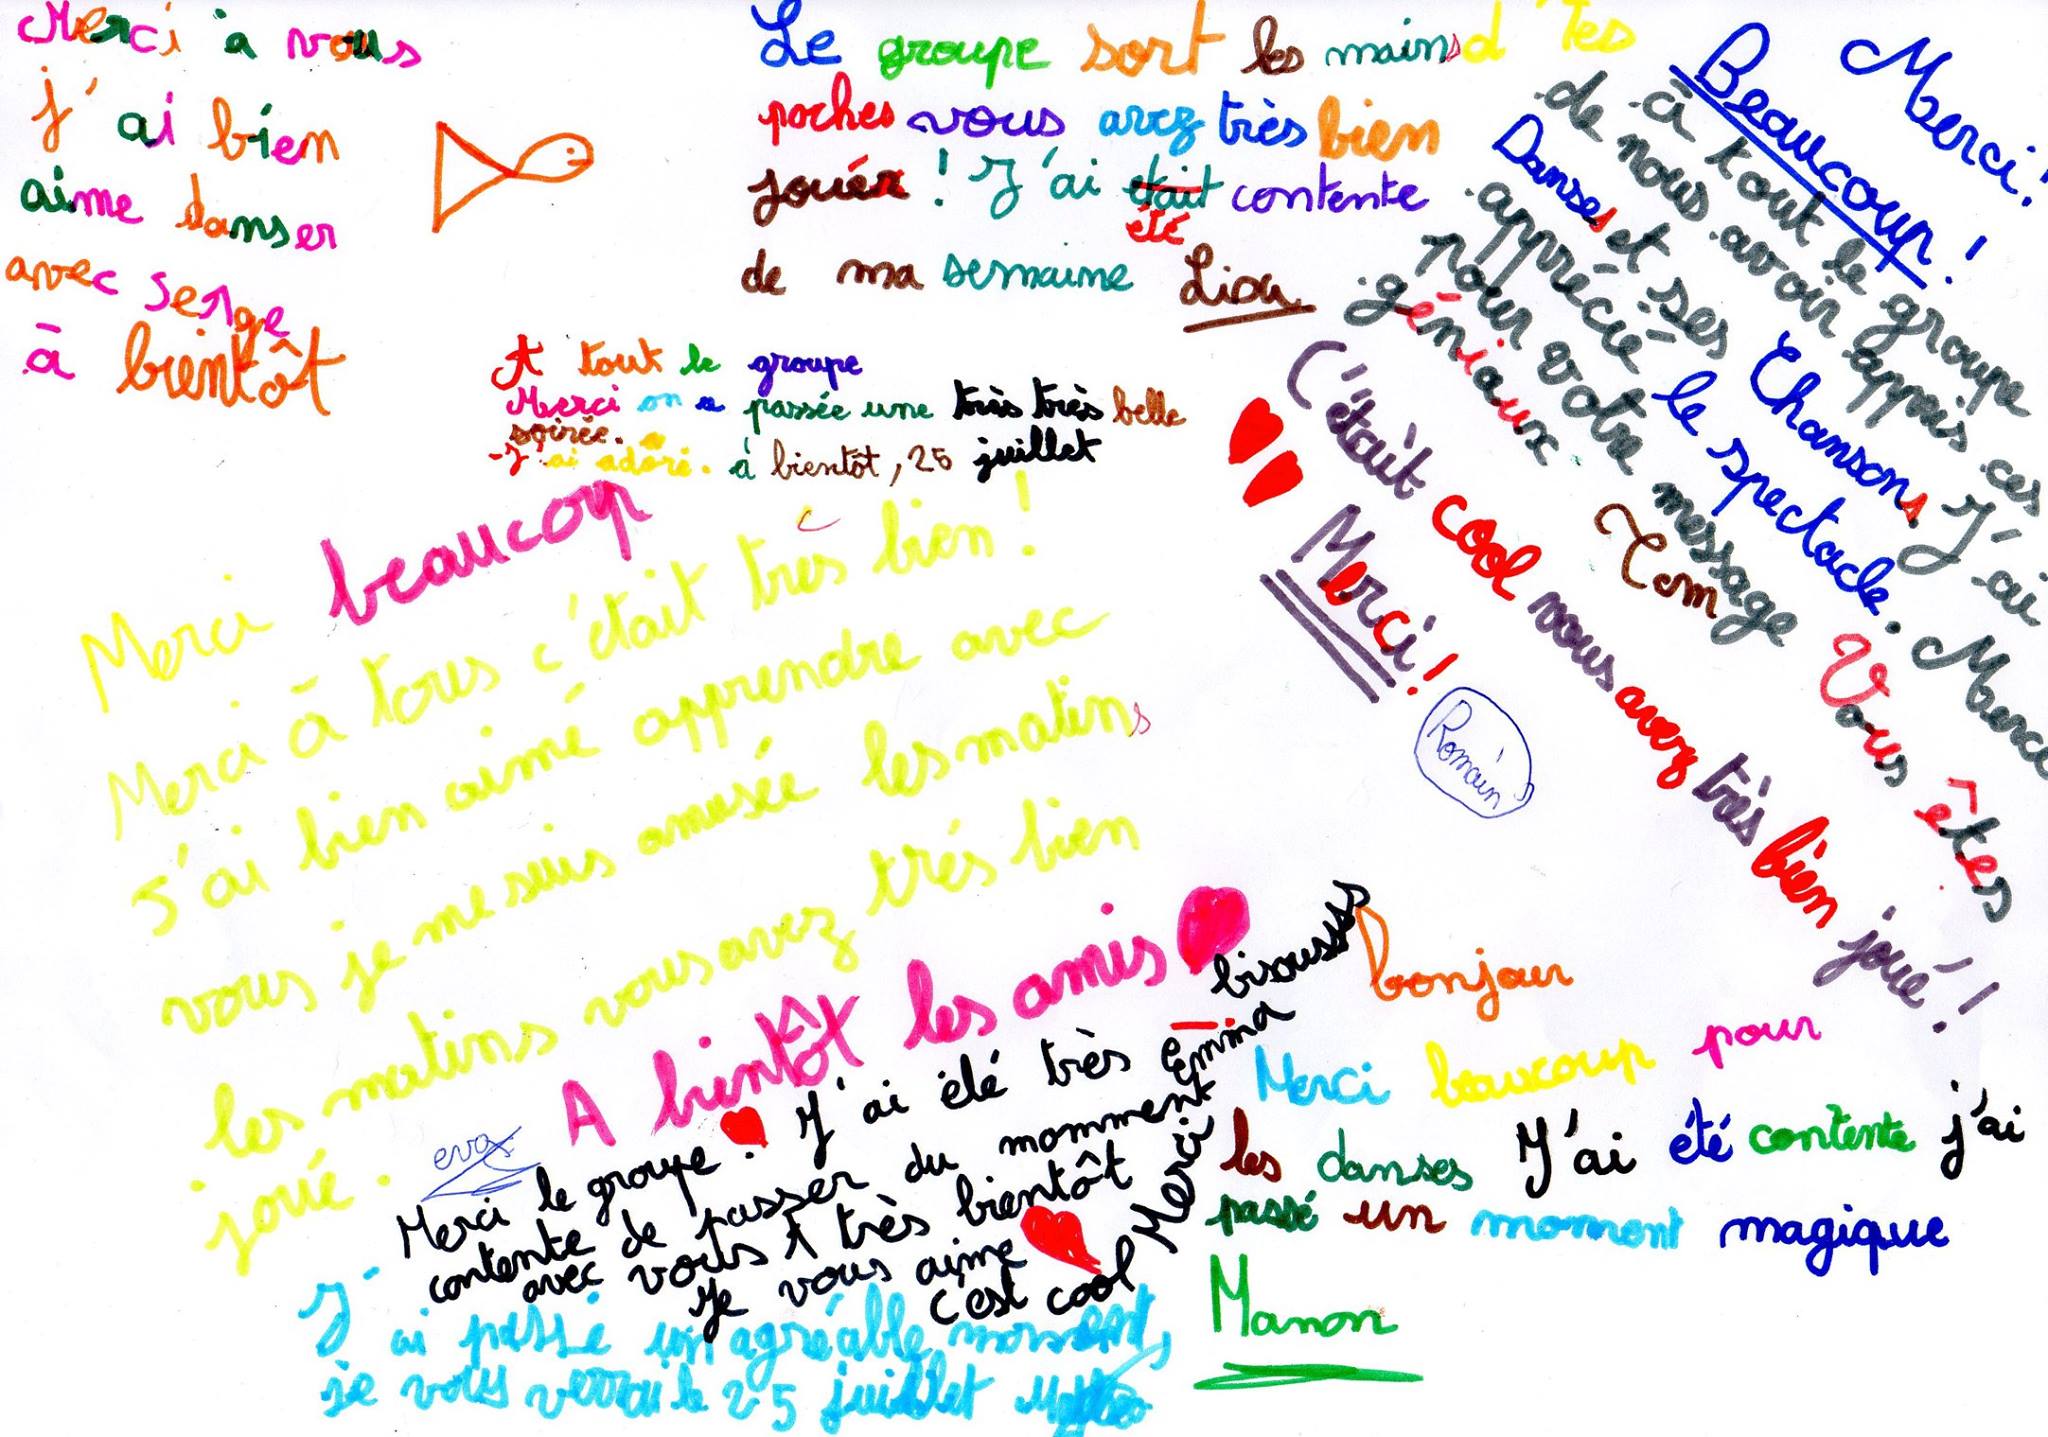 Merci à vous
j'ai bien
aime danser
avec serge
à bientôt
Le groupe sort les mains d'tes
poches vous avez très bien
jouér ! J'ai était contente
été
de ma semaine Lisa
A tout le groupe
Merci on a passée une très très belle
soirée.
J'ai adoré. à bientôt, 25 juillet
Merci!
Beaucoup!
à tout le groupe
de nous avoir appris ces
Danses et ses Chansons J'ai
apprécié le spectacle. Merci
pour votre message Vous êtes
géniaux
Tom
C'était cool vous avez très bien joué!
Merci!
Romain
Merci beaucoup
Merci à tous c'était très bien!
J'ai bien aimé apprendre avec
vous je me suis amusée les matins
les matins vous avez trés bien
joué.
A bientôt les amis
eva
Merci le groupe. J'ai été très
contente de passer du momment
avec vous A très bientôt
Je vous aime
c'est cool Merci
Emma
bisousss
J'ai passé un agréable moment,
je vous verrai le 25 juillet
bonjour
Merci beaucoup pour
les danses J'ai été contente j'ai
passé un moment magique
Manon